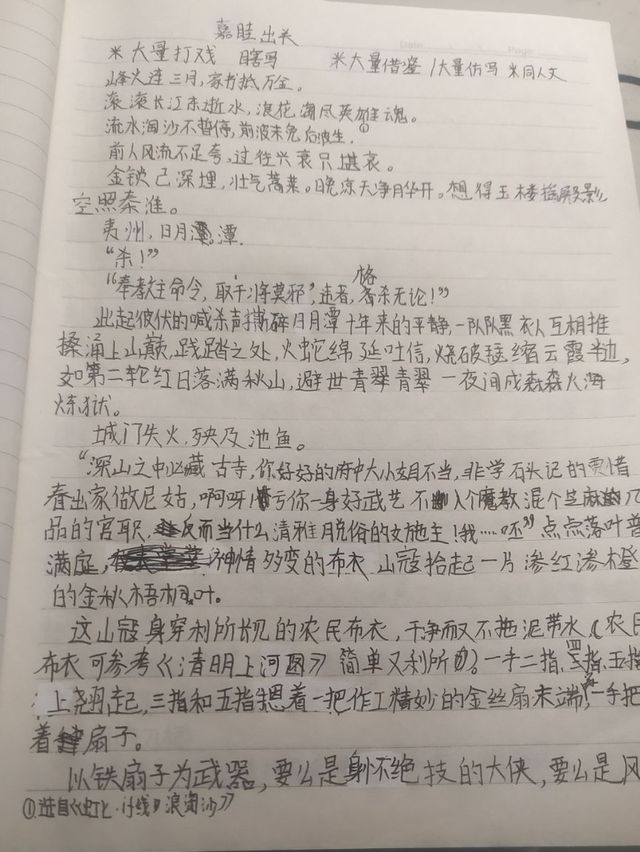 嘉睦出关
米大量打戏 瞎写 米大量借鉴/大量仿写 米同人文
烽火连三月,家书抵万金。
滚滚长江东逝水,浪花淘尽英雄魂。
流水淘沙不暂停,前波未免后波生①.
前人风流不足夸,过往兴衰只堪哀。
金锁已深埋,壮气蒿莱。晚凉天净月华开。想得玉楼瑶殿影,
空照秦淮。
夷州,日月潭.
“杀!”
“奉教主命令,取干将莫邪,违者,格杀无论!”
此起彼伏的喊杀声撕碎日月潭十年来的平静,一队队黑衣人互相推
搡涌上山巅,践踏之处,火蛇绵延吐信,烧破云霞半边,
如第二轮红日落满秋山,避世青翠青翠一夜间成森森火海
炼狱。
城门失火,殃及池鱼。
“深山之中必藏古寺,你好好的府中大小姐不当,非学石头记的贾惜
春出家做尼姑,啊呀!亏你一身好武艺不入个魔教混个芝麻几
品的官职,反而当什么清雅脱俗的女施主!我……呸”点点落叶普
满庭,神情多变的布衣山寇拾起一片渗红渗橙
的金秋梧桐叶。
这山寇身穿利所长见的农民布衣,干净而又不拖泥带水(农民
布衣可参考《清明上河图》简单又利所)。一手二指,四指,五指
上翘起,三指和五指摁着一把作工精妙的金丝扇末端,一手把
着扇子。
以铁扇子为武器,要么是身怀绝技的大侠,要么是风
①选自《刘禹锡·浪淘沙》